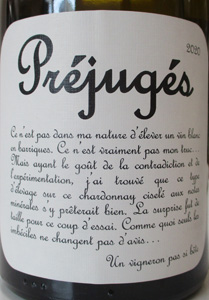 2020
Préjugés
Ce n'est pas dans ma nature d'élever un vin blanc
en barriques. Ce n'est vraiment pas mon truc...
Mais ayant le goût de la contradiction et de
l'expérimentation, j'ai trouvé que ce type
d'élevage sur ce chardonnay ciselé aux notes
minérales s'y prêterait bien. La surprise fut de
taille pour ce coup d'essai. Comme quoi seuls les
imbéciles ne changent pas d'avis...
Un vigneron pas si bête